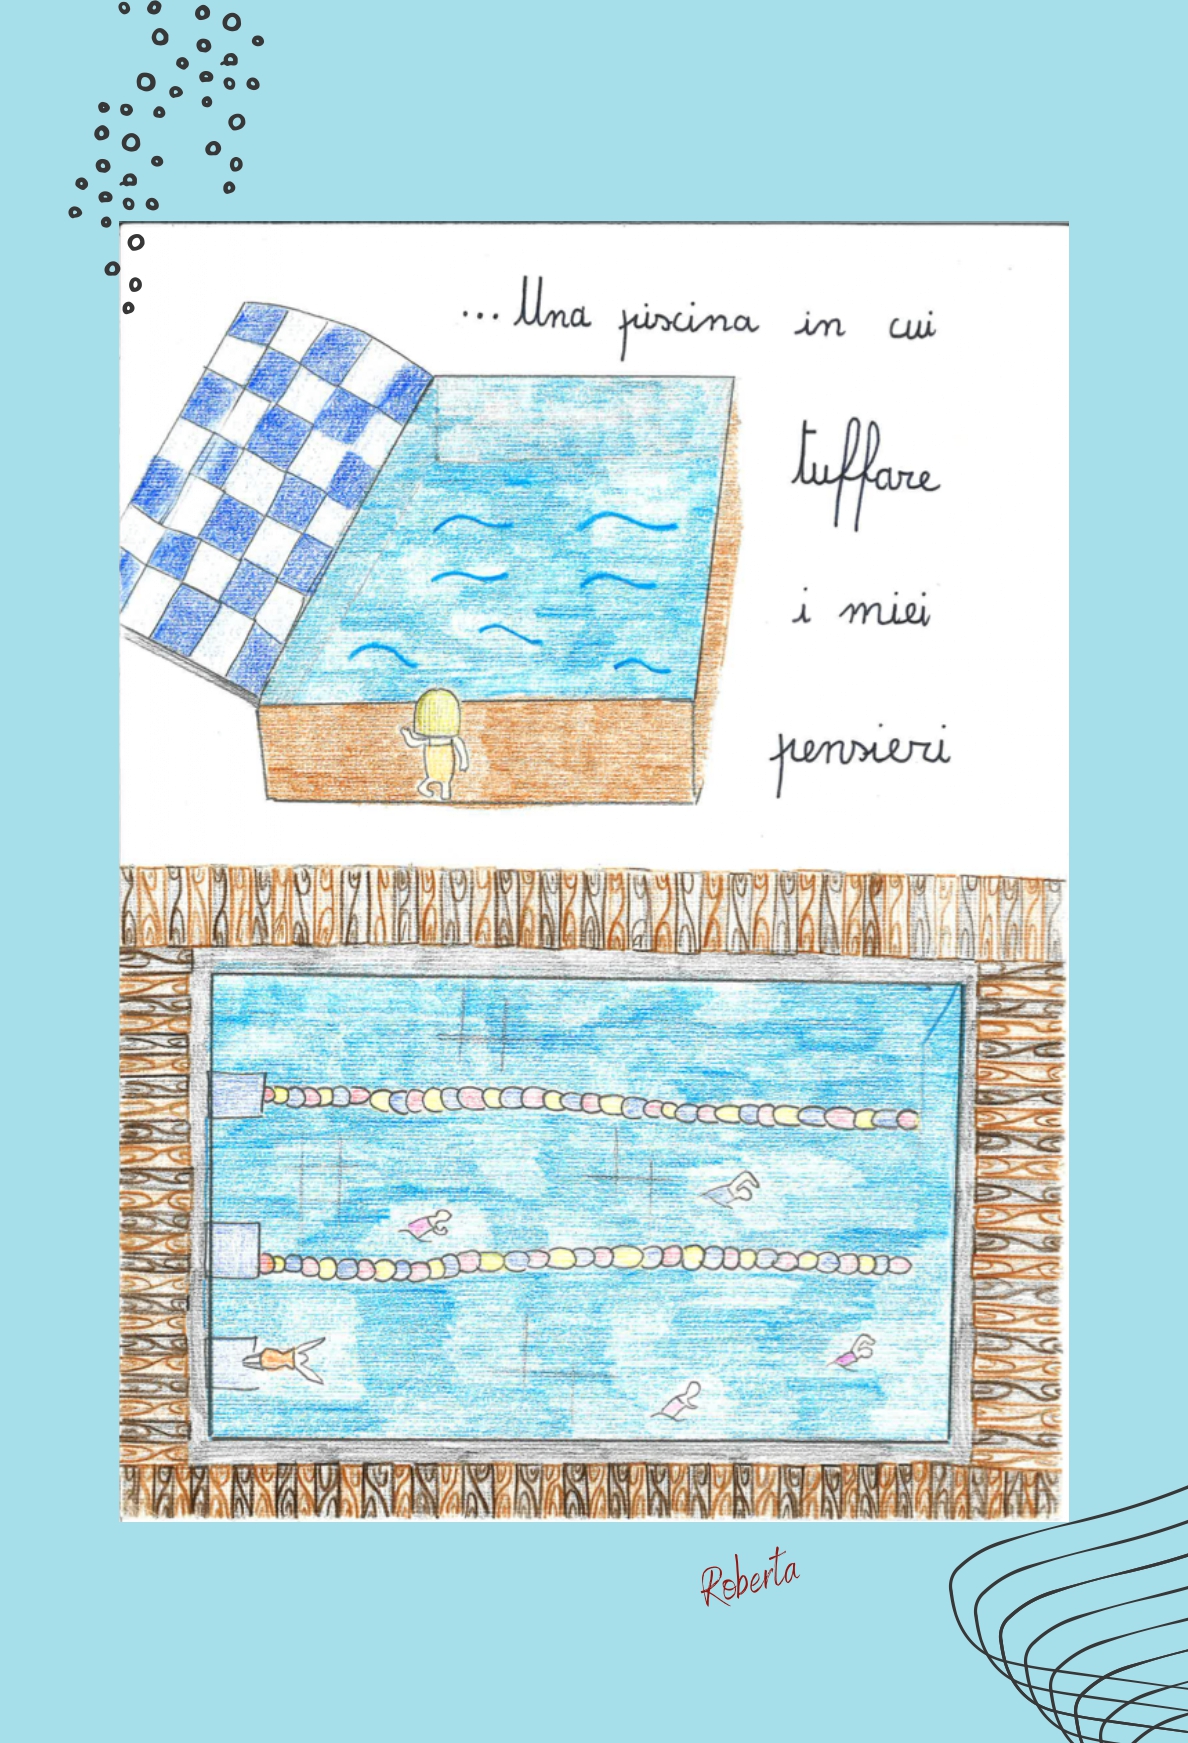 ...Una piscina in cui
tuffare
i miei
pensieri
Roberta